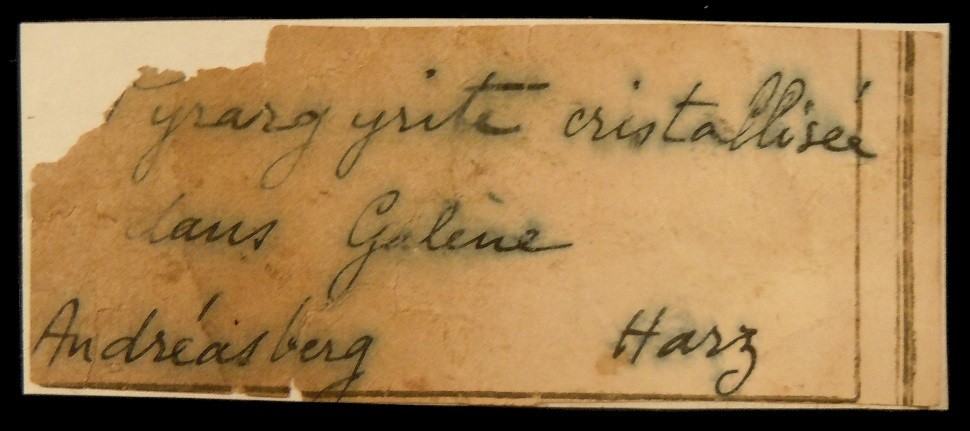 Pyrargyrite cristallisée
dans Galène
Andréasberg Harz